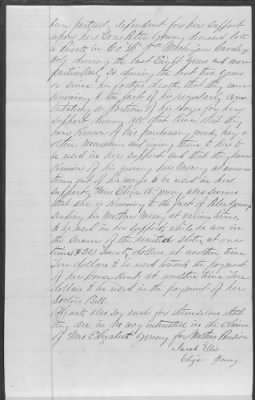 been partially dependent for her support
upon her son Peter Young deceased late
a Private in Co. 8th Michigan Cavalry
Vols during the last Eight years and more
particularly so during the last two years
or since his fathers death, that they were
knowing to the fact of his regularly con-
tributing a portion of his wages for her
support during all that time, that they
have known of his purchasing wood, hay &
other and giving them to her to
be used in her support and that they have
known of his giving her money at various
times out of his wages to be used in her
support, Miss Eliza A Young also swears
that she is knowing to the fact of Peter Young
sending his Mother money at various times
to be used in her support while he was in
the Service of the United States at one
time $20 Twenty dollars, at another time
Ten dollars to be used towards the payment
of her House Rent at another time five
dollars to be used in the payment of her
Doctors Bill.
Affiants also Say each for themselves that
they are in no way interested in the claim
of Mrs Elizabeth Young for Mothers Pension
Jacob Ellis
Eliza Young